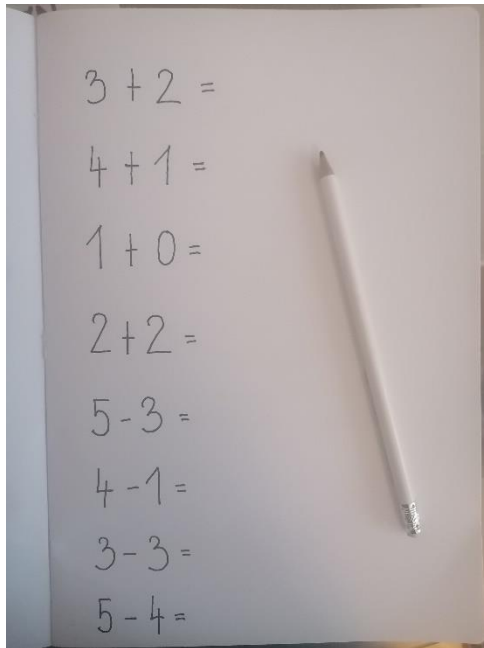 3 + 2 =
4 + 1 =
1 + 0 =
2 + 2 =
5 - 3 =
4 - 1 =
3 - 3 =
5 - 4 =